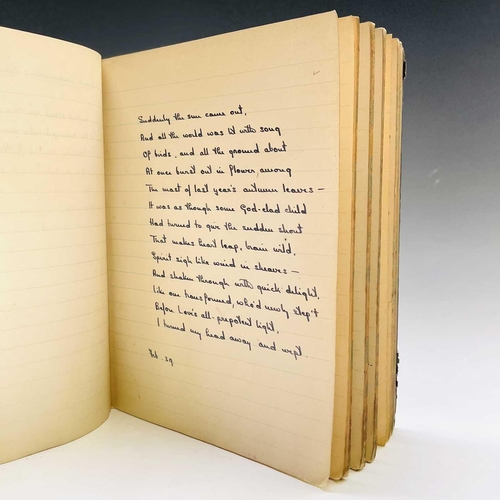 Suddenly the sun came out,
And all the world was lit with song
Of birds, and all the ground about
At once burst out in flower, among
The mast of last year's autumn leaves —
It was as though some God-clad child
Had turned to give the sudden shout
That makes heart leap, brain wild,
Spirit sigh like wind in sheaves —
And shaken through with quick delight,
Like one transfound, who'd newly step't
Before Love's all-prepotent light,
I turned my head away and wept.
Feb. 39